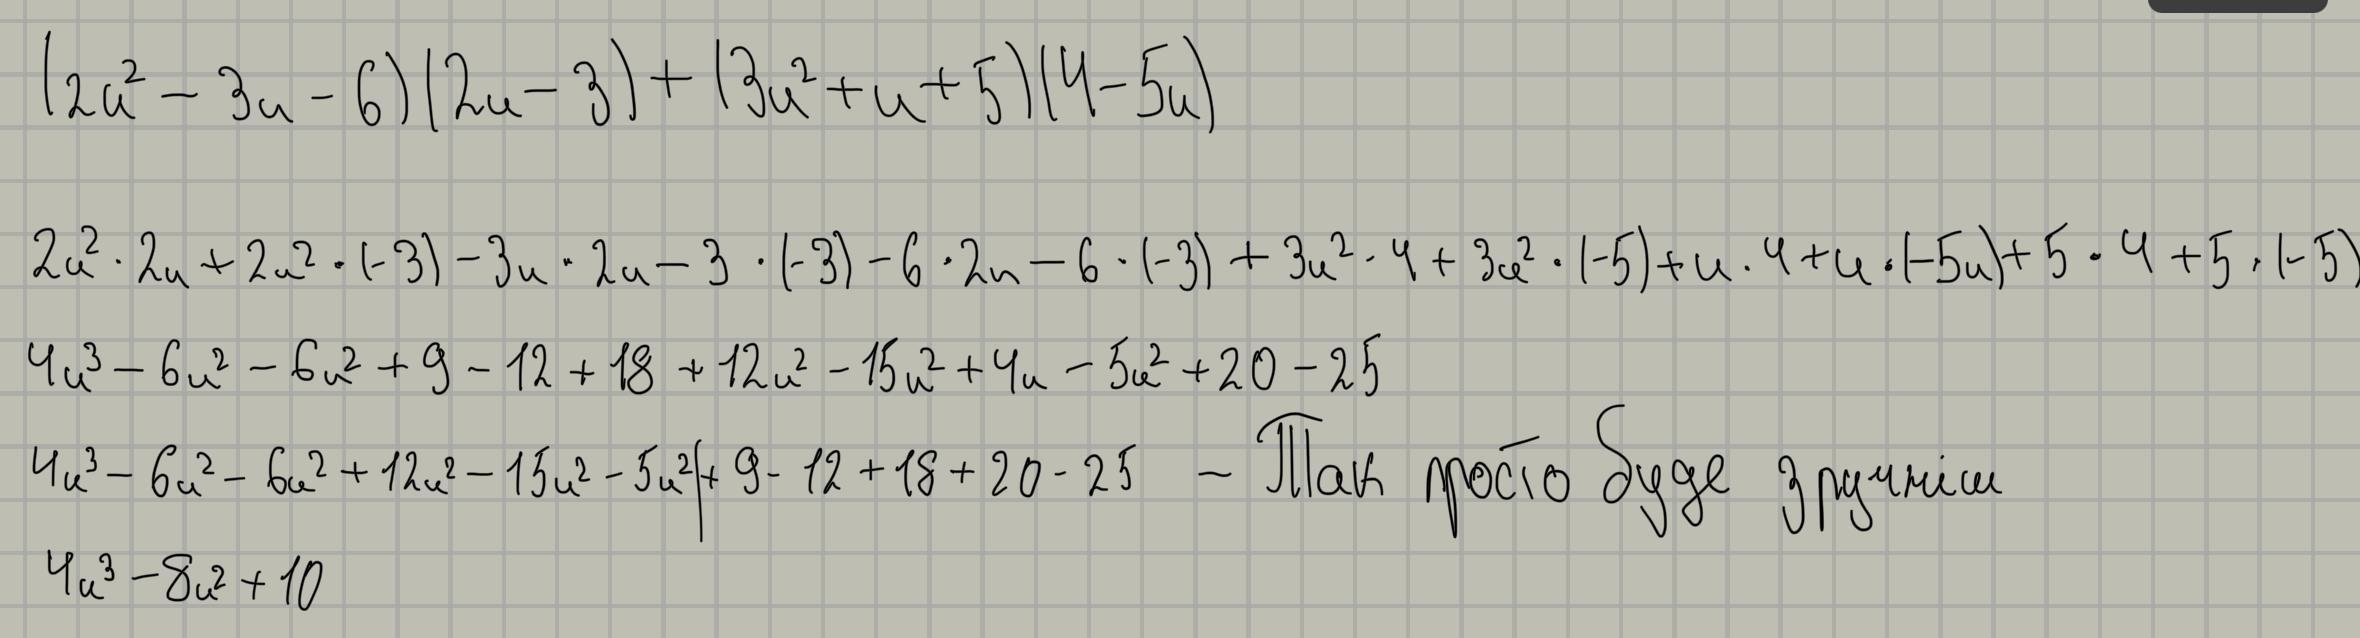 (2u² - 3u - 6)(2u - 3) + (3u² + u + 5)(4 - 5u)
2u² · 2u + 2u² · (-3) - 3u · 2u - 3 · (-3) - 6 · 2u - 6 · (-3) + 3u² · 4 + 3u² · (-5) + u · 4 + u · (-5u) + 5 · 4 + 5 · (-5)
4u³ - 6u² - 6u² + 9 - 12 + 18 + 12u² - 15u² + 4u - 5u² + 20 - 25
4u³ - 6u² - 6u² + 12u² - 15u² - 5u² | + 9 - 12 + 18 + 20 - 25 - Так просто буде зручніш
4u³ - 8u² + 10